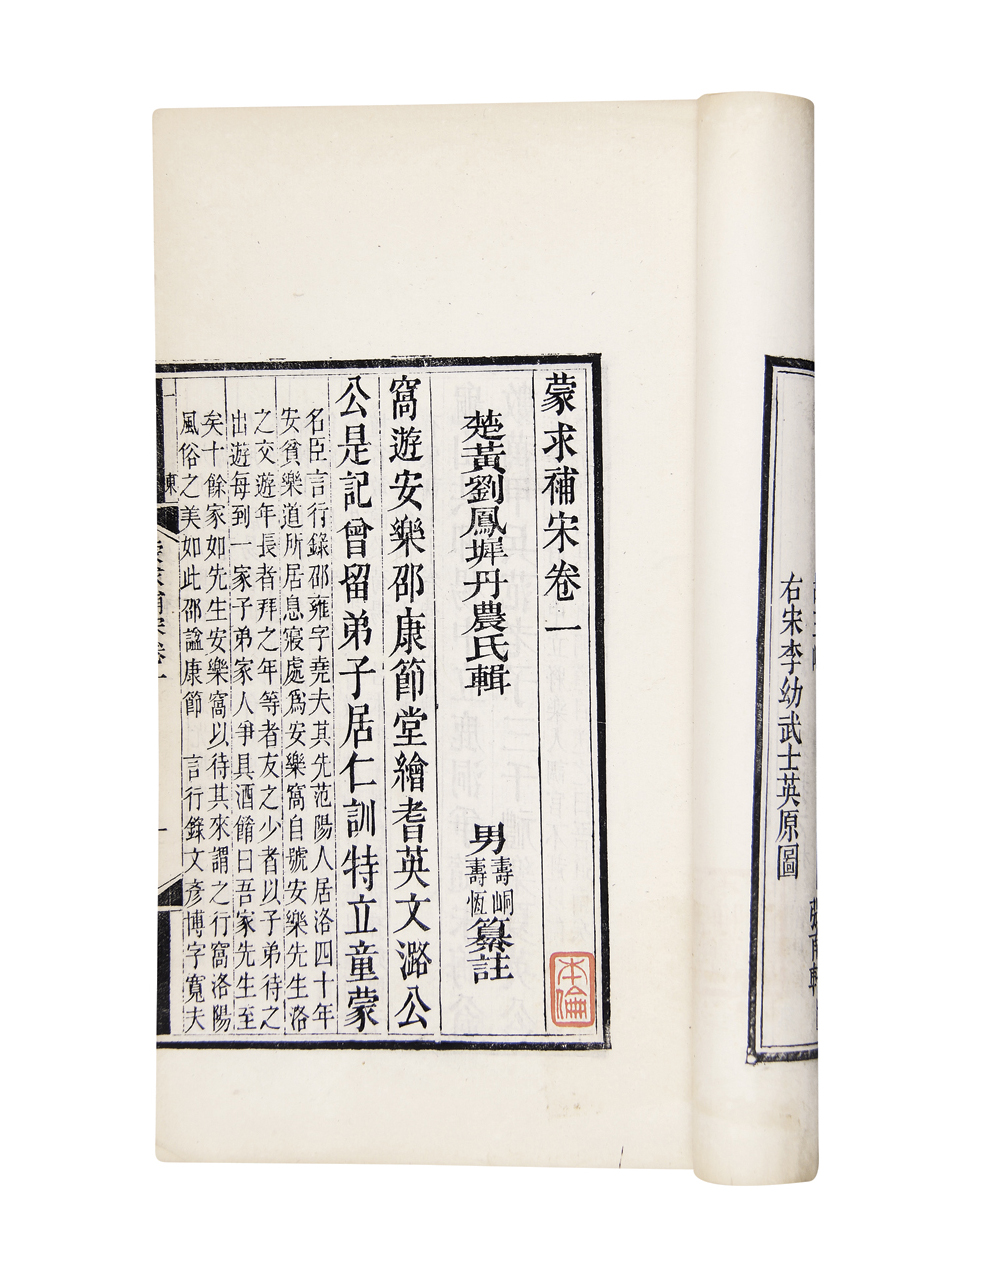 右宋李幼武士英原圖
蒙求補宋卷一
本倫
楚黃劉鳳墀丹農氏輯
男壽峒壽恆纂註
窩遊安樂邵康節堂繪耆英文潞公
公是記曾留弟子居仁訓特立童蒙
名臣言行錄邵雍字堯夫其先范陽人居洛四十年
安貧樂道所居息寢處爲安樂窩自號安樂先生洛
之交遊年長者拜之年等者友之少者以子弟待之
出遊每到一家子弟家人爭具酒餚曰吾家先生至
矣十餘家如先生安樂窩以待其來謂之行窩洛陽
風俗之美如此邵諡康節 言行錄文彥博字寬夫